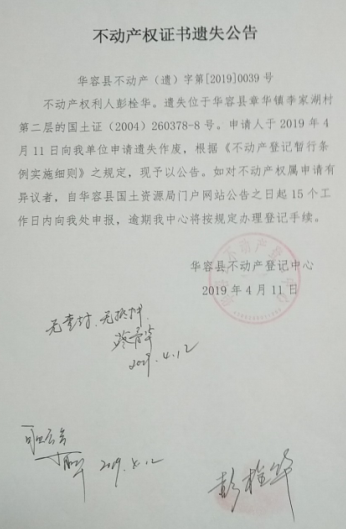 不动产权证书遗失公告
华容县不动产（遗）字第[2019]0039号
不动产权利人彭栓华。遗失位于华容县章华镇李家湖村
第二层的国土证（2004）260378-8号。申请人于2019年4
月11日向我单位申请遗失作废，根据《不动产登记暂行条
例实施细则》之规定，现予以公告。如对不动产权属申请有
异议者，自华容县国土资源局门户网站公告之日起15个工
作日内向我处申报，逾期我中心将按规定办理登记手续。
华容县不动产登记中心
2019年4月11日
无查封、无抵押
2019.4.12
2019.4.12
彭栓华